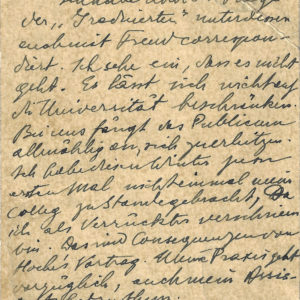 der „Graduierten“ unterdessen
auch mit Freud correspon-
diert. Ich sehe ein, dass es nicht
geht. Es lässt sich nicht auf
die Universität beschränken.
Bei uns fängt das Publicum
allmählig an, sich zu erhitzen.
Ich habe diesen Winter zum
ersten Mal nicht einmal mein
Colleg zu Stande gebracht, da
ich als Verrückter verschrieen
bin. Das sind Consequenzen von
Hoche's Vortrag. Meine Praxis geht
vorzüglich, auch mein Assis-